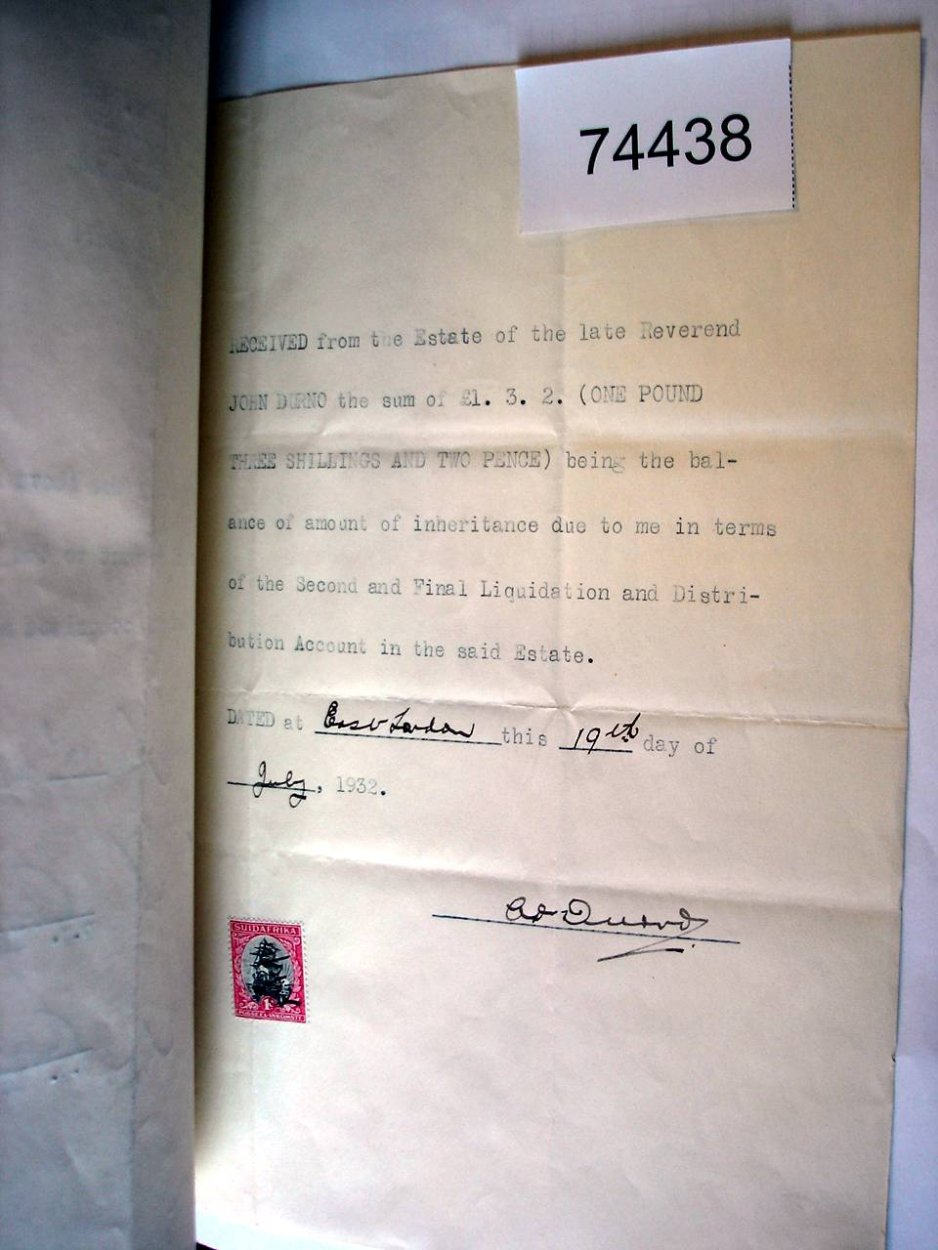 74438
RECEIVED from the Estate of the late Reverend
JOHN DURNO the sum of £1. 3. 2. (ONE POUND
THREE SHILLINGS AND TWO PENCE) being the bal-
ance of amount of inheritance due to me in terms
of the Second and Final Liquidation and Distri-
bution Account in the said Estate.
DATED at East London this 19th day of
July, 1932.
SUIDAFRIKA